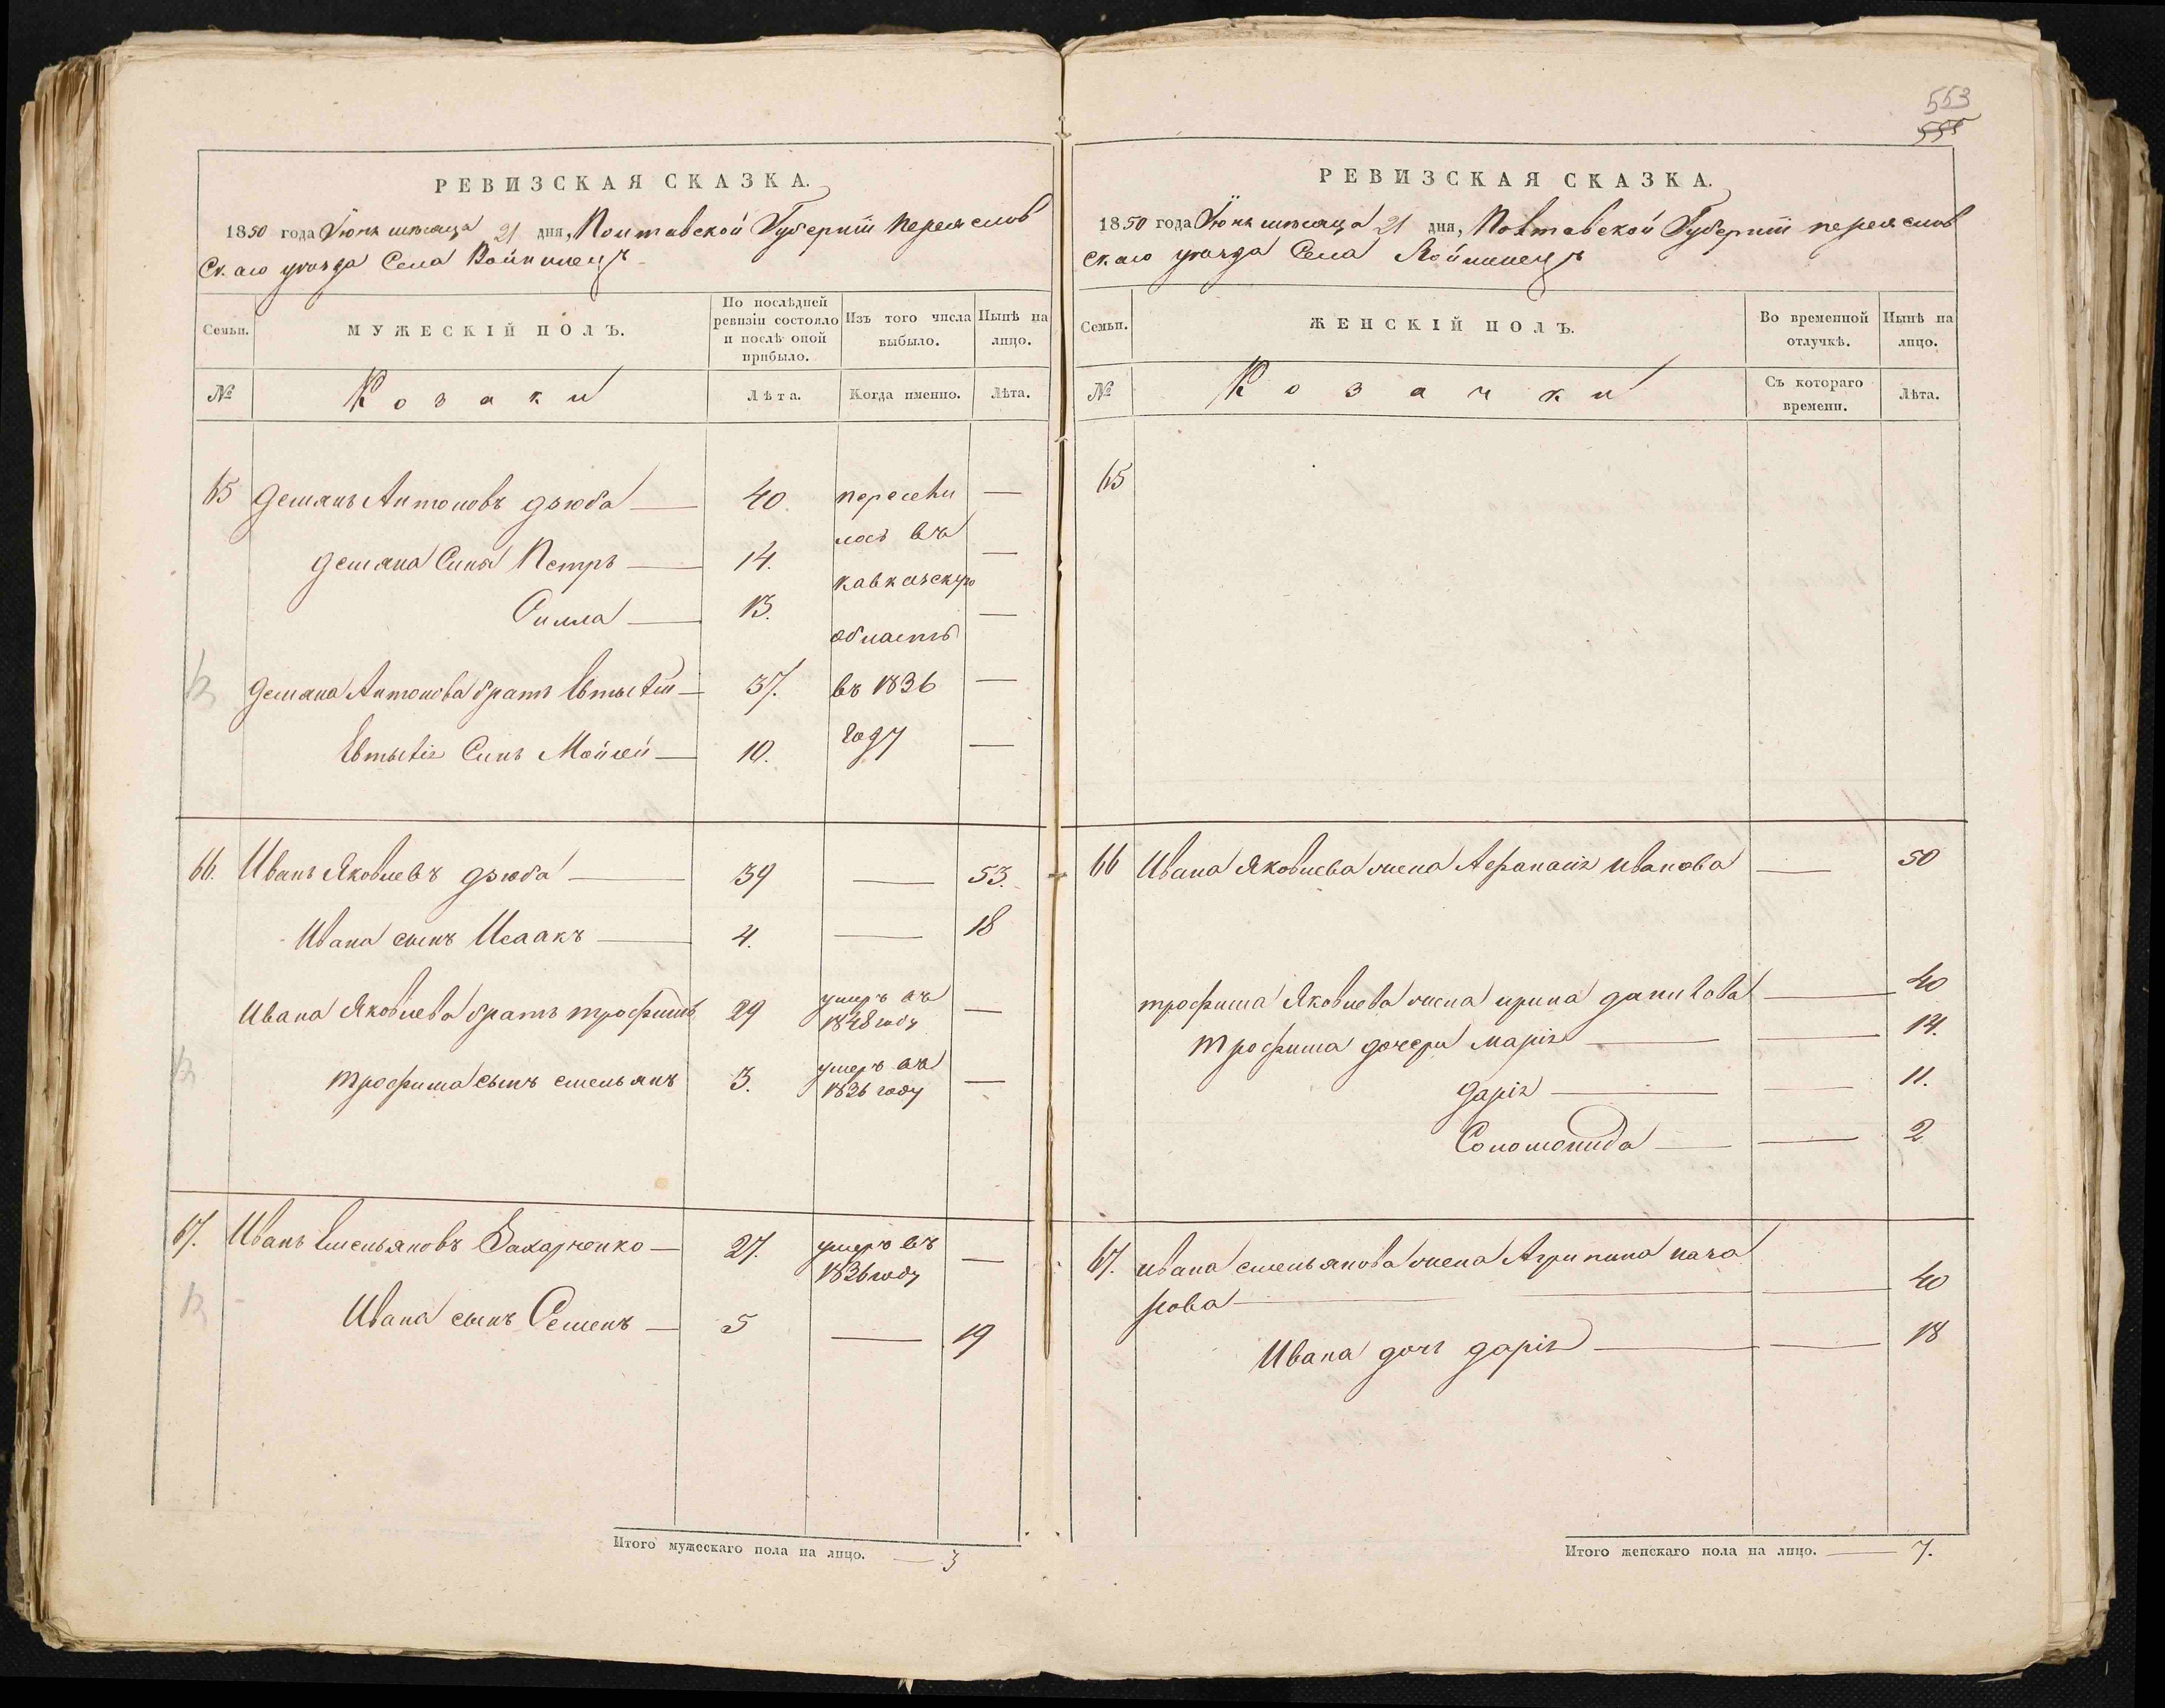 553
555
РЕВИЗСКАЯ СКАЗКА.
1850 года Іюнь мѣсяца 21 дня, Полтавской Губерніи переяслов
скаго уѣзда Села Войнинецъ
Семьи.
МУЖЕСКІЙ ПОЛЪ.
По послѣдней ревизіи состояло и послѣ оной прибыло.
Изъ того числа выбыло.
Нынѣ на лицо.
№
Козаки
Лѣта.
Когда именно.
Лѣта.
65 Демянъ Антоновъ дзюба — 40. пересели —
лось въ
Демяна Синъ Петръ — 14. —
кавказскую
13. —
область
Демяна Антонова братъ Евтыхій — 37. въ 1836 —
Евтыхія Синъ Мойсей — 10. году —
66. Иванъ Яковлевъ дзюба — 39 — 53.
Ивана сынъ Исаакъ — 4. — 18
Ивана Яковлева братъ трофимъ 29 умеръ въ 1848 году —
трофима сынъ емельянъ 3. умеръ въ 1836 году —
67. Иванъ Емельяновъ Захарченко — 27. умеръ въ 1836 году —
Ивана сынъ Семенъ — 5 — 19
Итого мужескаго пола на лицо. — 3
РЕВИЗСКАЯ СКАЗКА.
1850 года Іюнь мѣсяца 21 дня, Полтавской Губерніи переяслов
скаго уѣзда Села Войнинецъ
Семьи.
ЖЕНСКІЙ ПОЛЪ.
Во временной отлучкѣ.
Нынѣ на лицо.
№
Козачки
Съ котораго времени.
Лѣта.
65
66 Ивана Яковлева жена Афанасія иванова — 50
трофима Яковлева жена ирина данилова — 40
трофима дочери марія — — 14.
дарія — — 11.
Соломонида — — 2
67. ивана емельянова жена Агрипина наза
рова — — 40
Ивана дочь дарія — — 18
Итого женскаго пола на лицо. — 7.